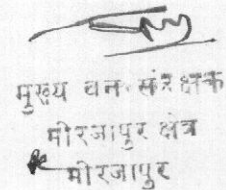 मुख्य वन संरक्षक
मीरजापुर क्षेत्र
मीरजापुर